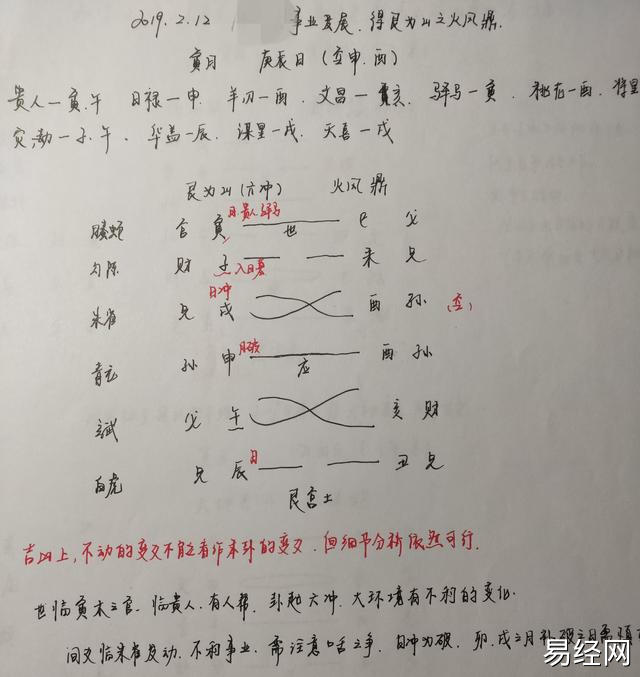 2019.2.12 事业发展.得艮为山之火风鼎.
寅月 庚辰日(空申.酉)
贵人一寅.午 日禄一申 羊刃一酉. 文昌一亥. 驿马一寅. 桃花一酉. 将星
灾,劫一子.午. 华盖一辰. 谋星一戌. 天喜一戌
艮为山(六冲) 火风鼎
日贵人驿马
螣蛇 官 寅 世 巳 父
勾陈 财 子 入日墓 未 兄
日冲
朱雀 兄 戌 酉 孙 (空)
青龙 孙 申 月破 应 酉 孙
玄武 父 午 亥 财
白虎 兄 辰 日 丑 兄
艮宫土
吉凶上,不动的变爻不能看作来卦的变爻.但细节分析依然可行.
世临寅木之官.临贵人.有人帮.卦起六冲.大环境有不利的变化.
间爻临朱雀发动.不利事业.需注意口舌之争.日冲为破.卯.戌之月
易经网